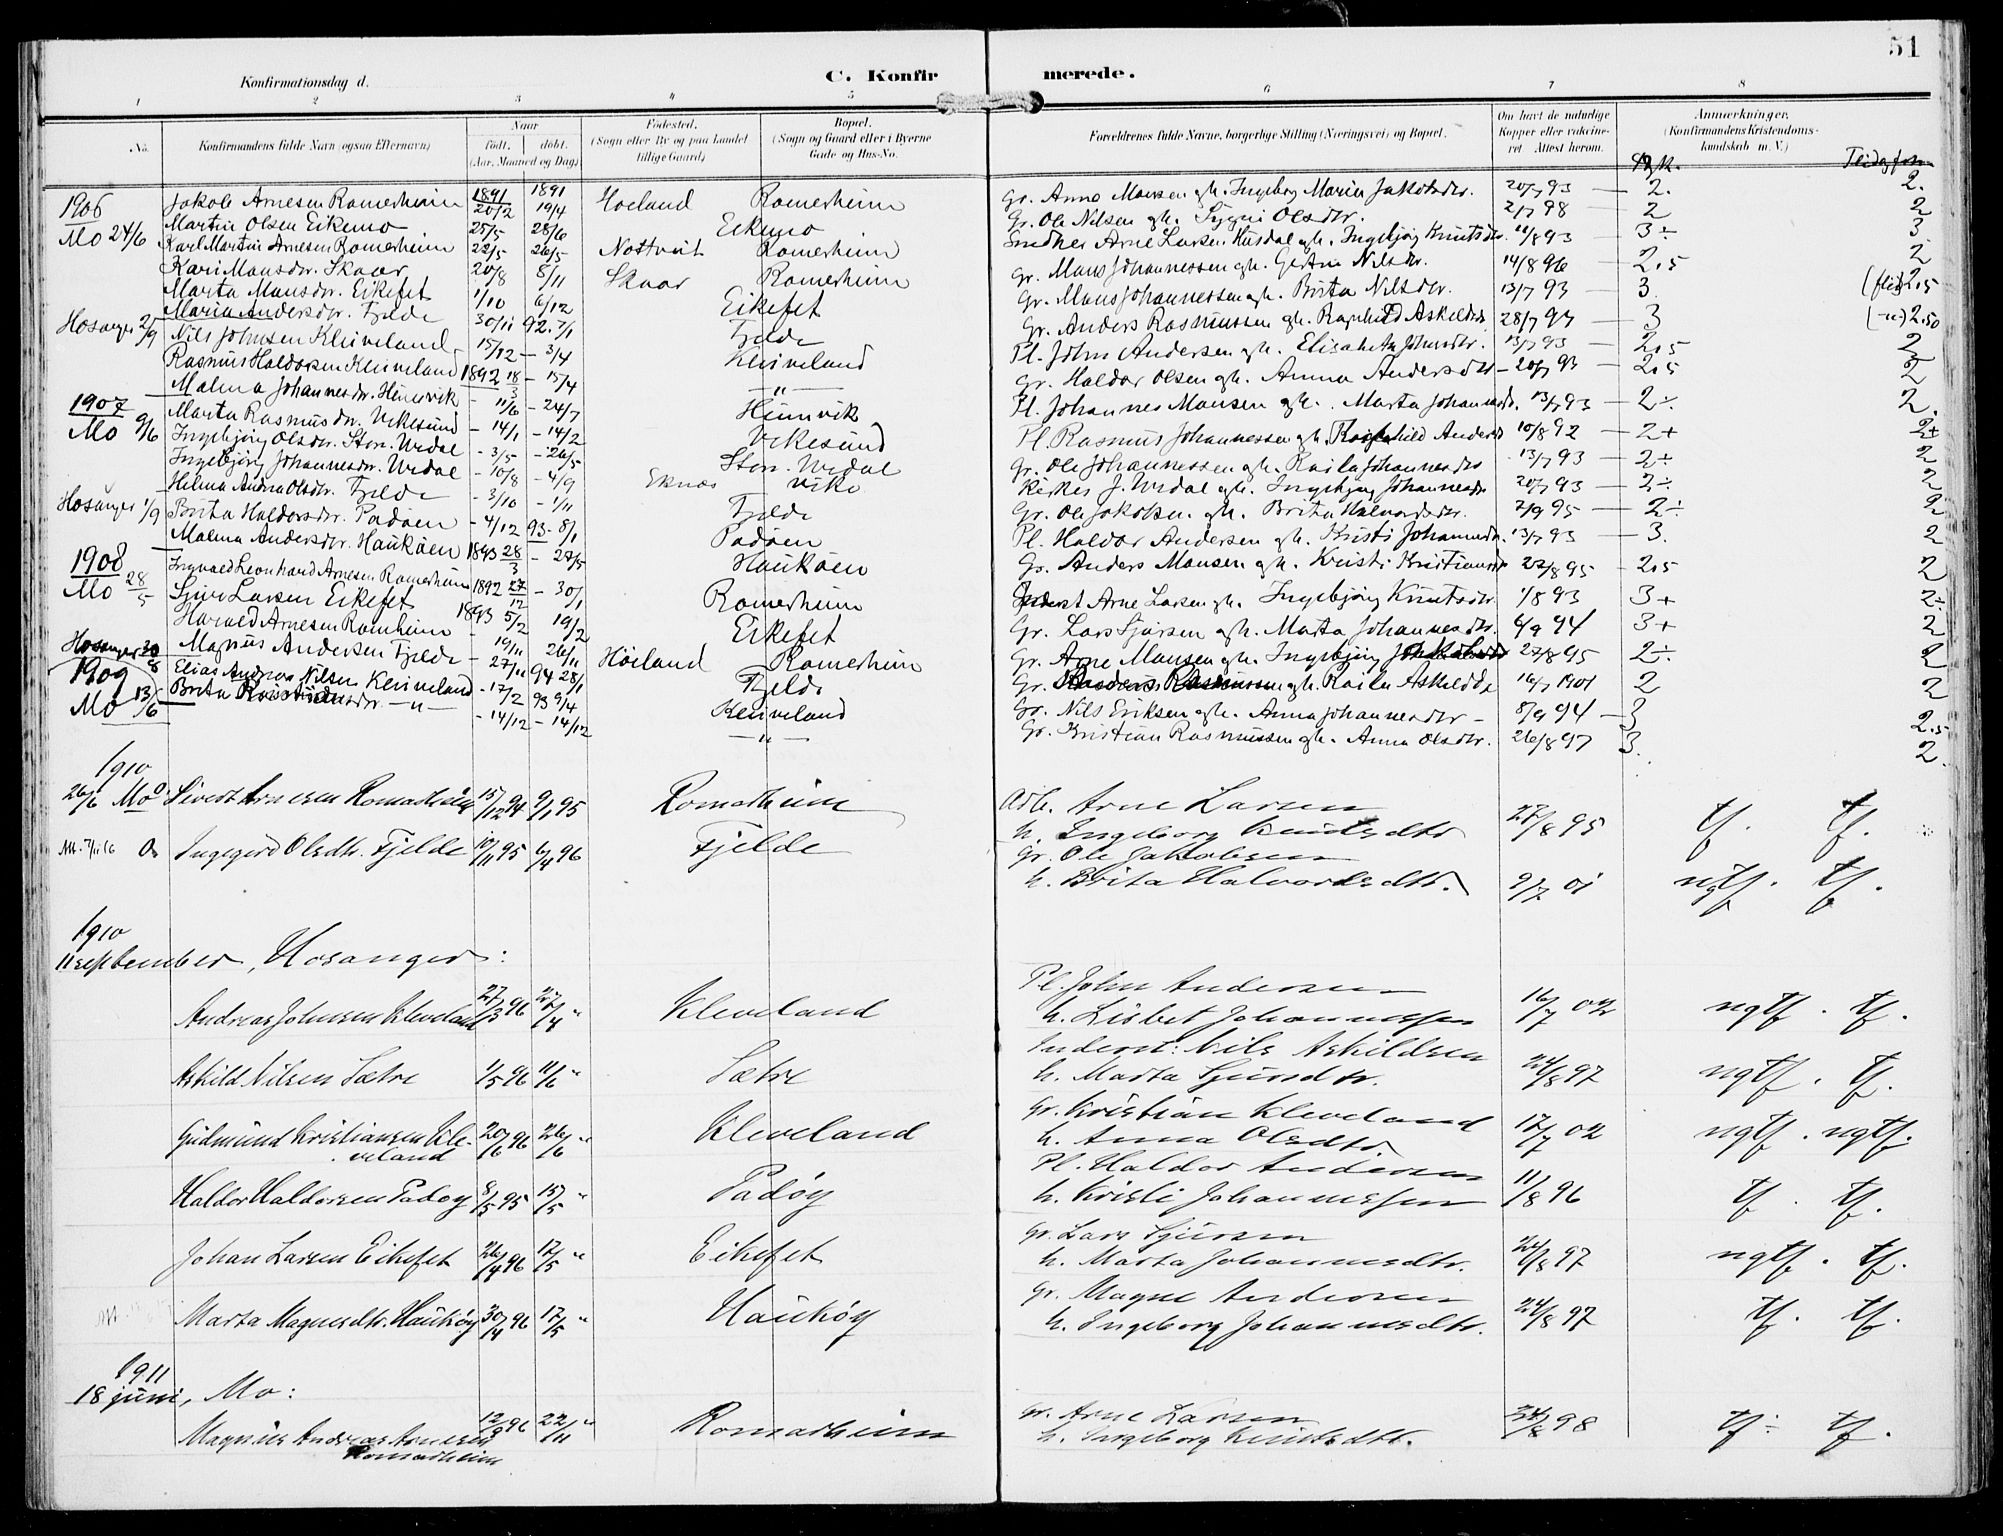 51
Konfirmationsdag d.
C. Konfirmerede.
1 2 3 4 5 6 7 8
No. Konfirmandens fulde Navn (ogsaa Efternavn) Naar født. døbt. (Aar, Maaned og Dag) Fødested. (Sogn eller By og paa Landet tillige Gaard) Bopæl. (Sogn og Gaard eller i Byerne Gade og Hus-No. Forældrenes fulde Navne, borgerlige Stilling (Næringsvei) og Bopæl. Om havt de naturlige Kopper eller vaksineret. Attest herom. Anmærkninger. (Konfirmandens Kristendomskundskab m. V.)
1906 Jakob Arnesen Romerheim 1891 20/2 1891 19/4 Hoeland Romerheim Gr. Arne Mansen gh. Ingeborg Maria Jakobsdr. 20/7 93 — 2. 2.
Mo 24/6 Martin Olsen Eikemo 25/5 28/6 Eikemo Gr. Ole Nilsen gh. Olsdtr. 2/7 98 — 2 2
Karl Martin Arnesen Romerheim 22/5 26/5 Nottveit Romerheim Arne Larsen Husdal gh. Ingebjørg Knutsdr. 11/8 93 — 3÷ 3
Kari Mansdr. Skaar 20/8 8/11 Skaar Romerheim Gr. Mans Johannessen gh. Gertru Nilsdr. 14/8 96 — 2.5 2
Marta Mansdr. Eikefet 1/10 6/12 Eikefet Gr. Mans Johannessen gh. Brita Nilsdr. 13/7 93 — 3. 2.5
Maria Andersdr. Fjelde 30/11 92. 7/1 Fjelde Gr. Anders Rasmussen gh. Ragnhild Askeldsdr 28/7 94 — 3 2.50
Hosanger 2/9 Nils Johnsen Kleiveland 15/12 — 3/4 Kleiveland Pl. John Andersen gh. Elisabeta Johansdr. 13/7 93 — 2.5 2
Rasmus Haldorsen Kleiveland 1892 18/3 — 15/4 — " — Gr. Haldor Olsen gh. Anna Andersdr — 20/7 93 — 2.5 2
Malena Johannesdr. Heimvik - 11/6 - 24/7 Heimvik Pl. Johannes Mansen gh. Marta Johannesdr. 13/7 93 — 2÷. 2.
1907 Mo 9/6 Marta Rasmusdr. Vikesund - 14/1 - 14/2 Vikesund Pl. Rasmus Johannessen gh. Ragnhild Andersdr 10/8 92 — 2+ 2+
Ingebjørg Olsdr. Stor. Urdal - 3/5 - 26/5 Stor. Urdal Gr. Ole Johannessen gh. Johannesdr 13/7 93 — 2÷ 2
Ingebjørg Johannesdr. Urdal - 10/8 - 4/9 Eknes Vike J. Urdal gh. Ingebjørg Johannesdr 20/7 93 — 2÷ 2
Helma Andrea Olsdr. Fjelde - 3/10 - 1/11 Fjelde Gr. Ole Jakobsen gh. Brita Halvorsdr. 7/9 95 — 2÷ 2
Hosanger 1/9 Brita Haldorsdr. Padøen - 4/12 93 - 8/1 Padøen Pl. Haldor Andersen gh. Kristi Johannesdr. 13/7 93 — 3. 2
Malena Andersdr. Haukøen 1893 28/3 - 27/5 Haukøen Gr. Anders Mansen gh. Kristi Kristiansdr 27/8 95 — 2.5 2
1908 Mo 28/5 Ingvald Leonhard Arnesen Romerheim 1892 27/12 - 30/1 Romerheim Arne Larsen gh. Ingebjørg Knutsdr. 1/8 93 3+ 2÷
Sjur Larsen Eikefet 1893 5/2 19/2 Eikefet Gr. Lars Sjursen gh. Marta Johannesdr. 6/9 94 3+ 2
Harald Arnesen Romheim - 19/11 26/11 Høiland Romerheim Gr. Arne Mansen gh. Ingebjørg Jakobsdr 27/8 95 2÷ 2
Hosanger 30/8 Magnus Andersen Fjelde - 27/11 94 28/1 Fjelde Gr. Anders Rasmussen gh. Askeldsdr. 16/7 1901 2 2
1909 Mo 13/6 Elias Andreas Nilsen Kleiveland - 17/2 93 9/4 Kleiveland Gr. Nils Eriksen gh. Anna Johannesdr — 8/9 94 — 3 2.5
Brita Kristiansdr. — " — - 14/12 - 14/12 — " — Gr. Kristian Rasmussen gh. Anna Olsdr. 26/8 97 3. 2.
1910
26/6 Mo Sivert Arnesen Romarheim 15/12 94 9/1 95 Romarheim Arb. Arne Larsen 27/8 95 tf. tf.
h. Ingeborg Knutsdtr
Ingegerd Olsdtr. Fjelde 10/11 95 6/4 96 Fjelde Gr. Ole Jakobsen
h. Brita Halvorsdtr. 9/7 01 ngtf. tf.
1910
11 september, Hosanger:
Andreas Johnsen Kleveland 27/3 96 27/4 " Kleveland Pl. John Andersen
h. Lisbet Johannessen 16/7 02 ngtf. tf.
Askild Nilsen Sætre 1/5 96 11/6 " Sætre Inderst: Nils Askildsen
h. Marta Sjursdtr. 24/8 97 ngtf. tf.
Gudmund Kristiansen Kleveland 20/6 96 26/6 " Kleveland Gr. Kristian Kleveland
h. Anna Olsdtr 17/7 02 ngtf. ngtf.
Haldor Haldorsen Padøy 8/5 95 15/5 " Padøy Pl. Haldor Andersen
h. Kristi Johannessen 11/8 96 tf. tf.
Johan Larsen Eikefet 26/4 96 17/5 " Eikefet Gr. Lars Sjursen
h. Marta Johannesdtr. 24/8 97 ngtf. tf.
Marta Magnesdtr. Haukøy 30/4 96 17/5 " Haukøy Gr. Magne Andersen
h. Ingeborg Johannesdtr. 24/8 97 tf. tf.
1911
18 juni, Mo:
Magnus Andreas Arnesen Romarheim 12/9 96 22/11 " Romarheim Gr. Arne Larsen
h. Ingeborg Knutsdtr. 24/8 98 tf÷ tf.